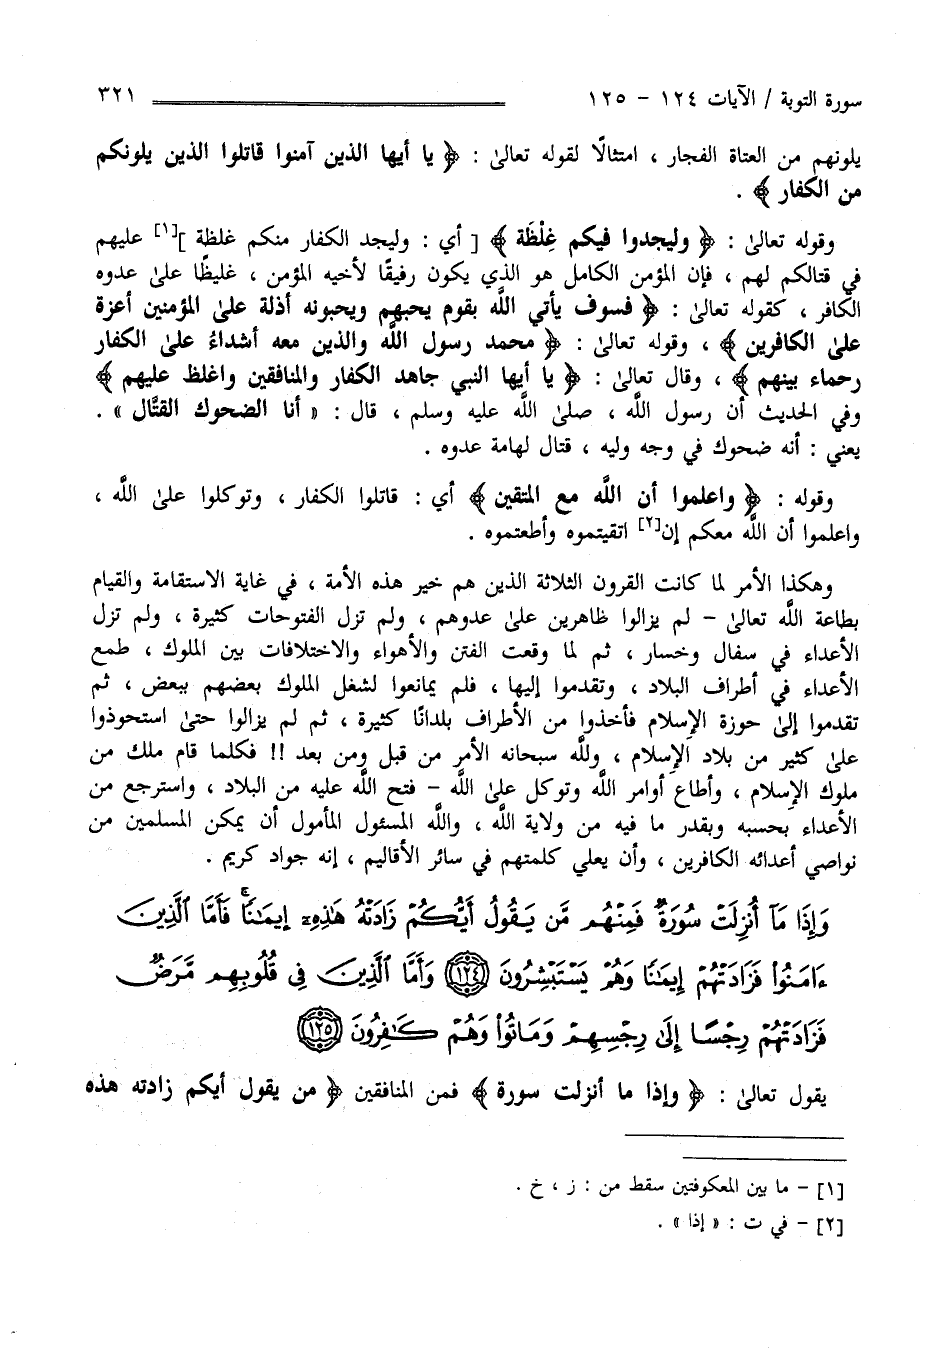 سورة التوبة / الآيات ١٢٤ - ١٢٥ ٣٢١
يلونهم من العتاة الفجار ، امتثالًا لقوله تعالىٰ : ﴿ يا أيها الذين آمنوا قاتلوا الذين يلونكم
من الكفار ﴾ .
وقوله تعالىٰ : ﴿ وليجدوا فيكم غِلْظَة ﴾ [ أي : وليجد الكفار منكم غلظة ][١] عليهم
في قتالكم لهم ، فإن المؤمن الكامل هو الذي يكون رفيقًا لأخيه المؤمن ، غليظًا علىٰ عدوه
الكافر ، كقوله تعالىٰ : ﴿ فسوف يأتي اللَّه بقوم يحبهم ويحبونه أذلة علىٰ المؤمنين أعزة
علىٰ الكافرين ﴾ ، وقوله تعالىٰ : ﴿ محمد رسول اللَّه والذين معه أشداءُ علىٰ الكفار
رحماء بينهم ﴾ ، وقال تعالىٰ : ﴿ يا أيها النبي جاهد الكفار والمنافقين واغلظ عليهم ﴾
وفي الحديث أن رسول اللَّه ، صلىٰ اللَّه عليه وسلم ، قال : « أنا الضحوك القتَّال » .
يعني : أنه ضحوك في وجه وليه ، قتال لهامة عدوه .
وقوله : ﴿ واعلموا أن اللَّه مع المتقين ﴾ أي : قاتلوا الكفار ، وتوكلوا علىٰ اللَّه ،
واعلموا أن اللَّه معكم إن[٢] اتقيتموه وأطعتموه .
وهكذا الأمر لما كانت القرون الثلاثة الذين هم خير هذه الأمة ، في غاية الاستقامة والقيام
بطاعة اللَّه تعالىٰ - لم يزالوا ظاهرين علىٰ عدوهم ، ولم تزل الفتوحات كثيرة ، ولم تزل
الأعداء في سفال وخسار ، ثم لما وقعت الفتن والأهواء والاختلافات بين الملوك ، طمع
الأعداء في أطراف البلاد ، وتقدموا إليها ، فلم يمانعوا لشغل الملوك بعضهم ببعض ، ثم
تقدموا إلىٰ حوزة الإسلام فأخذوا من الأطراف بلدانًا كثيرة ، ثم لم يزالوا حتىٰ استحوذوا
علىٰ كثير من بلاد الإسلام ، وللَّه سبحانه الأمر من قبل ومن بعد !! فكلما قام ملك من
ملوك الإسلام ، وأطاع أوامر اللَّه وتوكل علىٰ اللَّه - فتح اللَّه عليه من البلاد ، واسترجع من
الأعداء بحسبه وبقدر ما فيه من ولاية اللَّه ، واللَّه المسئول المأمول أن يمكن المسلمين من
نواصي أعدائه الكافرين ، وأن يعلي كلمتهم في سائر الأقاليم ، إنه جواد كريم .
وَإِذَا مَآ أُنزِلَتْ سُورَةٌ فَمِنْهُم مَّن يَقُولُ أَيُّكُمْ زَادَتْهُ هَٰذِهِۦٓ إِيمَٰنًا ۚ فَأَمَّا ٱلَّذِينَ
ءَامَنُوا۟ فَزَادَتْهُمْ إِيمَٰنًا وَهُمْ يَسْتَبْشِرُونَ ١٢٤ وَأَمَّا ٱلَّذِينَ فِى قُلُوبِهِم مَّرَضٌ
فَزَادَتْهُمْ رِجْسًا إِلَىٰ رِجْسِهِمْ وَمَاتُوا۟ وَهُمْ كَٰفِرُونَ ١٢٥
يقول تعالىٰ : ﴿ وإذا ما أنزلت سورة ﴾ فمن المنافقين ﴿ من يقول أيكم زادته هذه
[١] - ما بين المعكوفتين سقط من : ز ، خ .
[٢] - في ت : « إذا » .